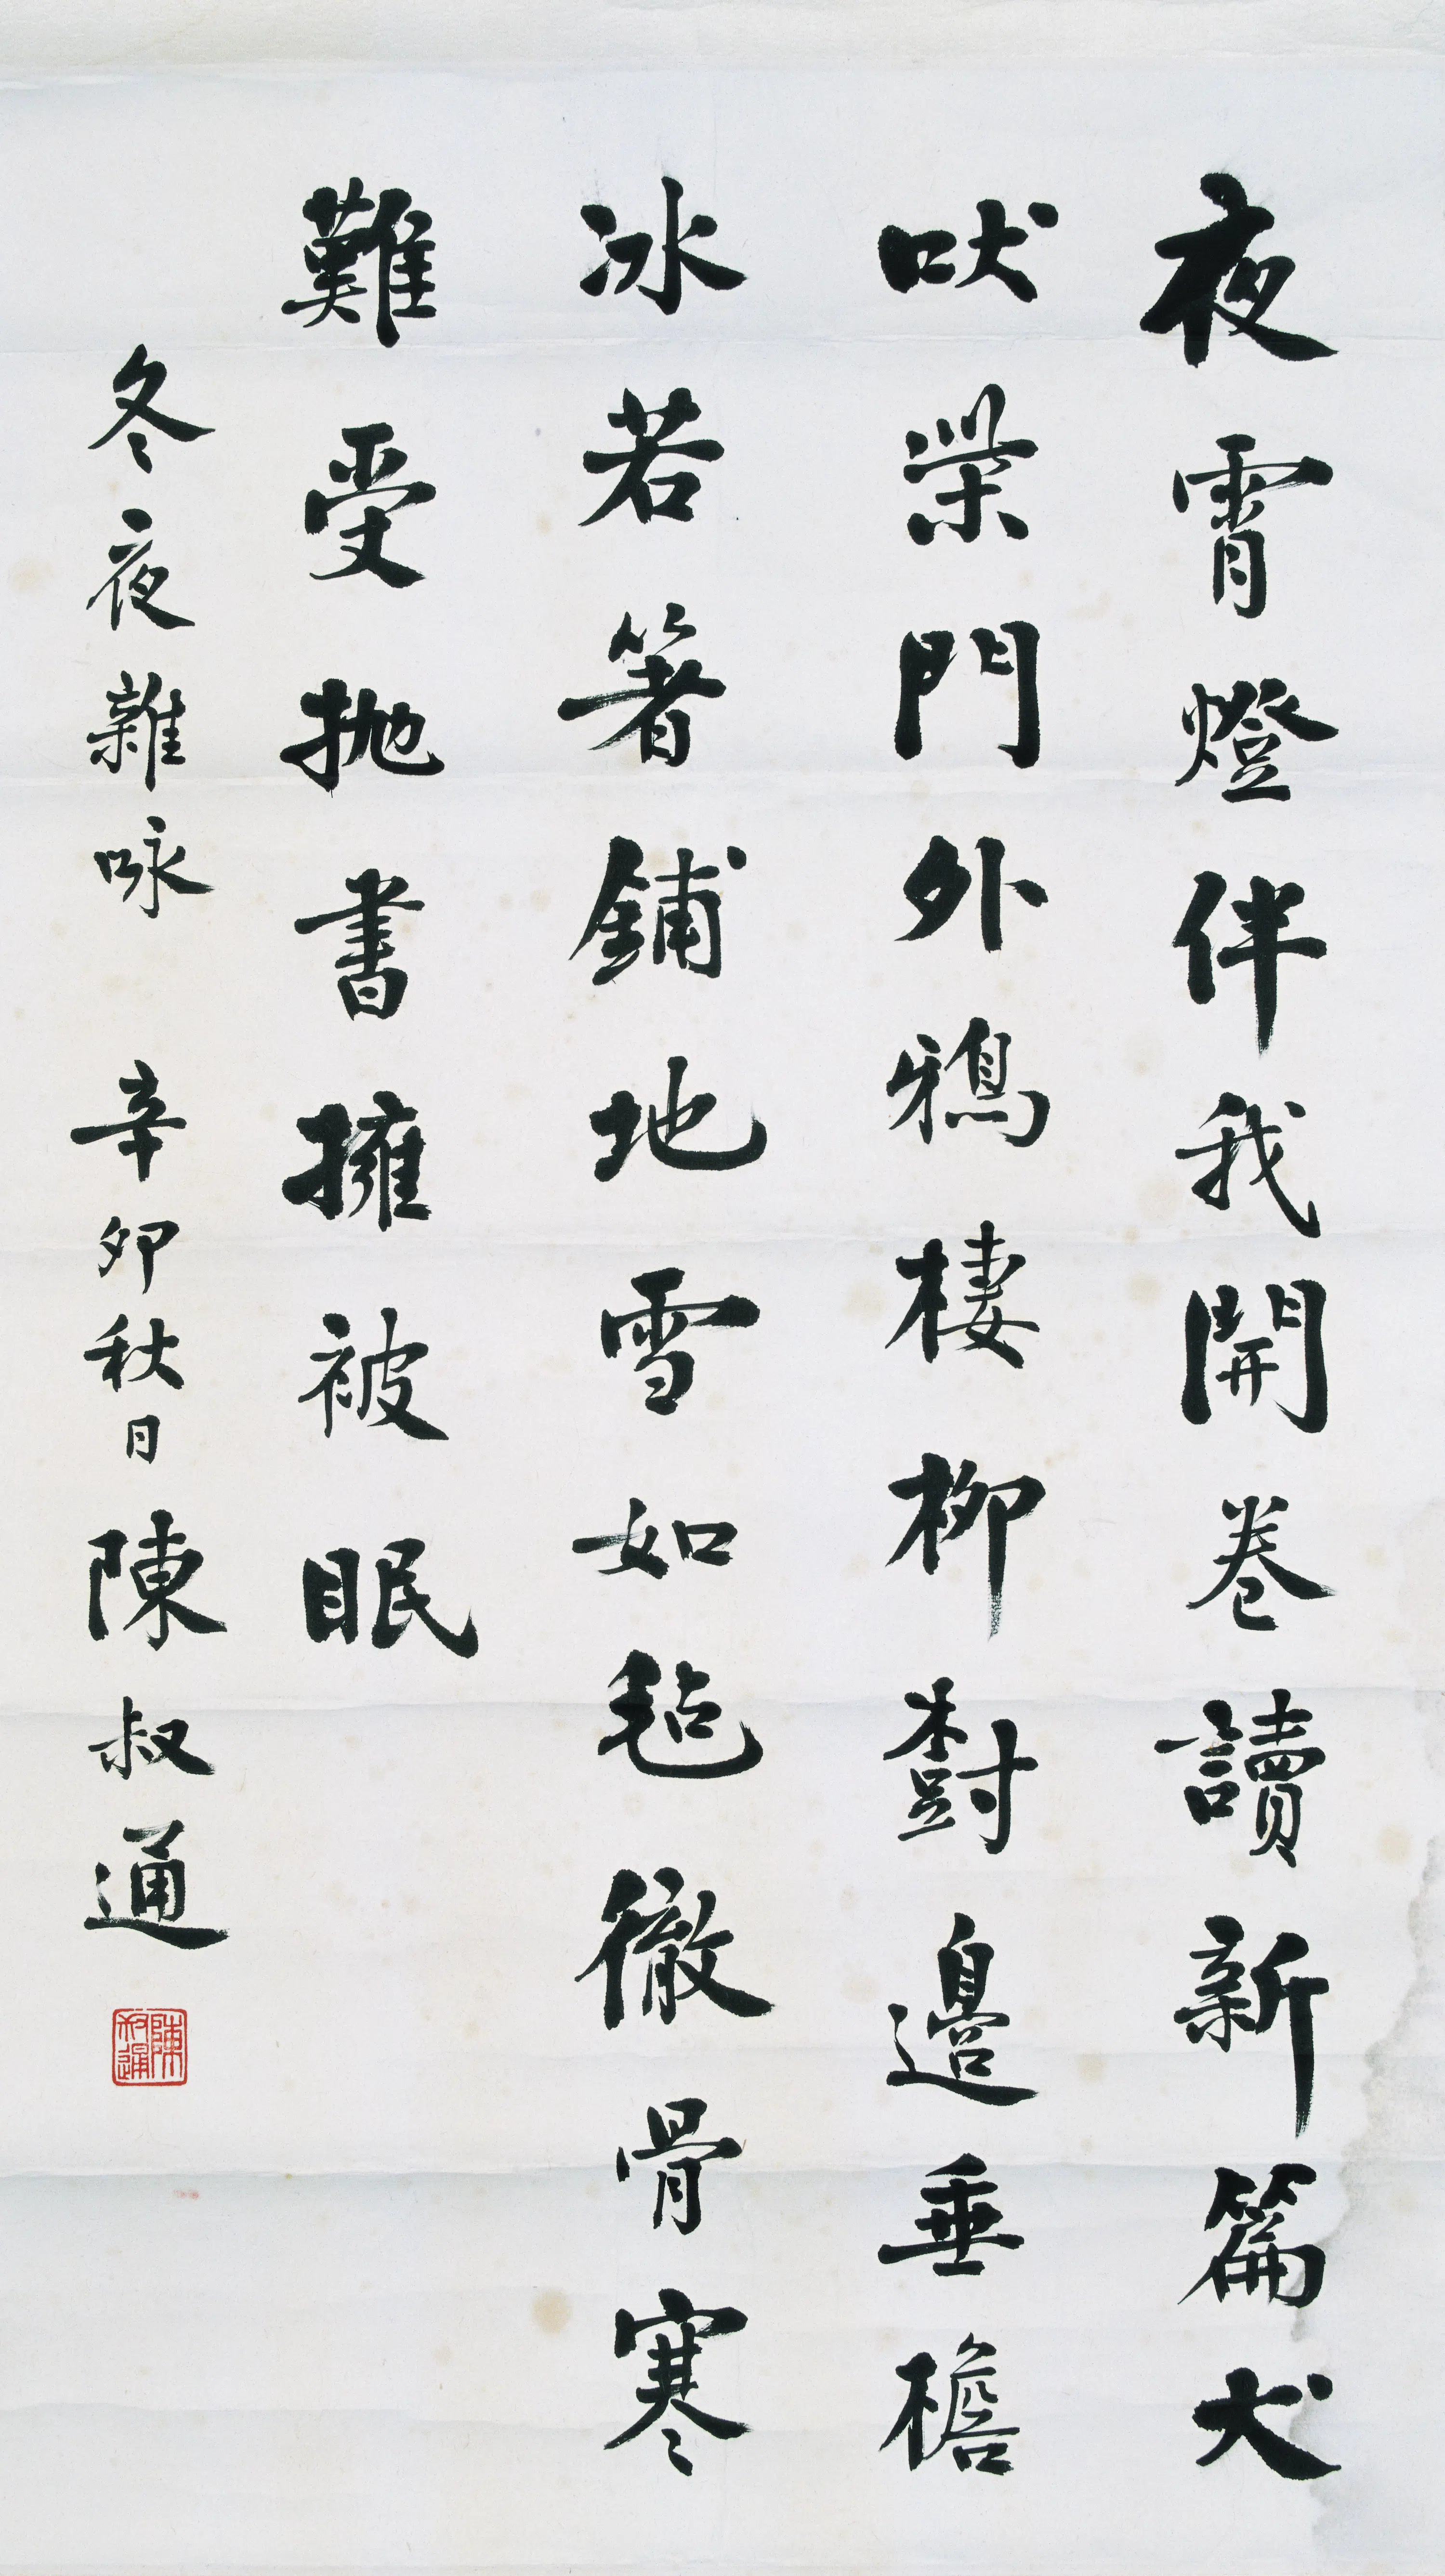 夜霄燈伴我開卷讀新篇犬
吠柴門外鴉棲柳樹邊垂檐
冰若箸鋪地雪如毡徹骨寒
難受拋書擁被眠
冬夜雜咏 辛卯秋日陳叔通
陳叔通